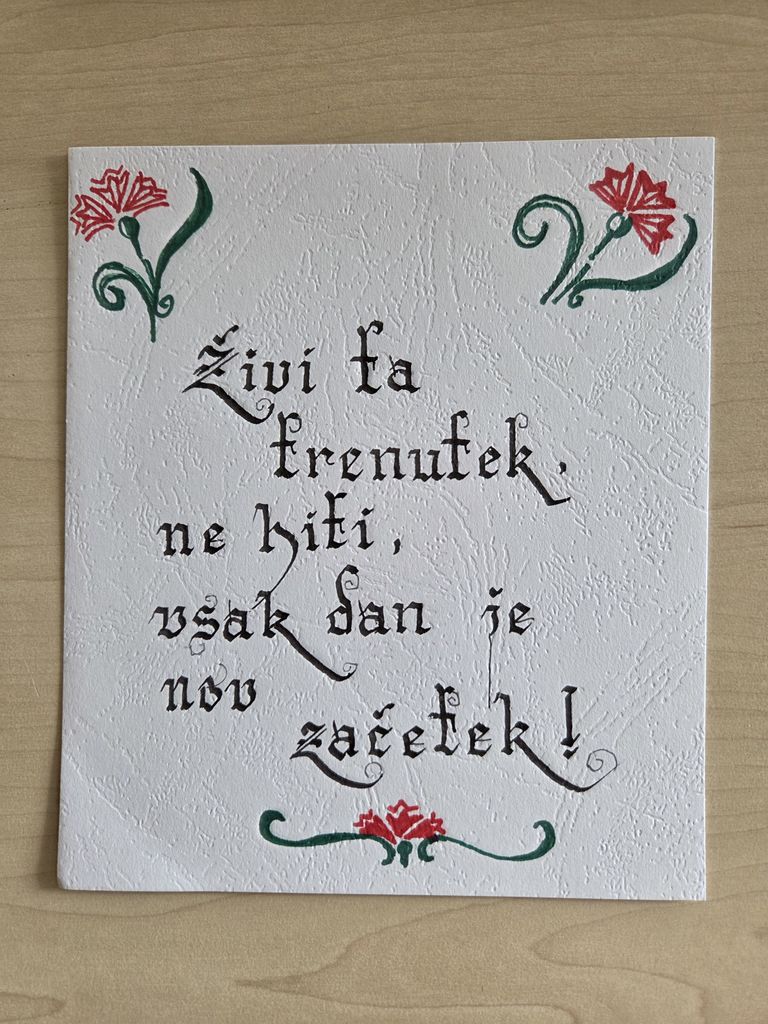 Živi ta
trenutek,
ne hiti,
vsak dan je
nov
začetek!